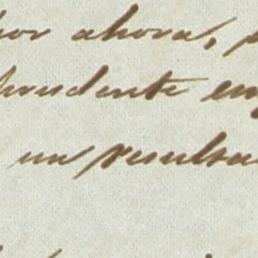 por ahora,
prudente em
un resulta